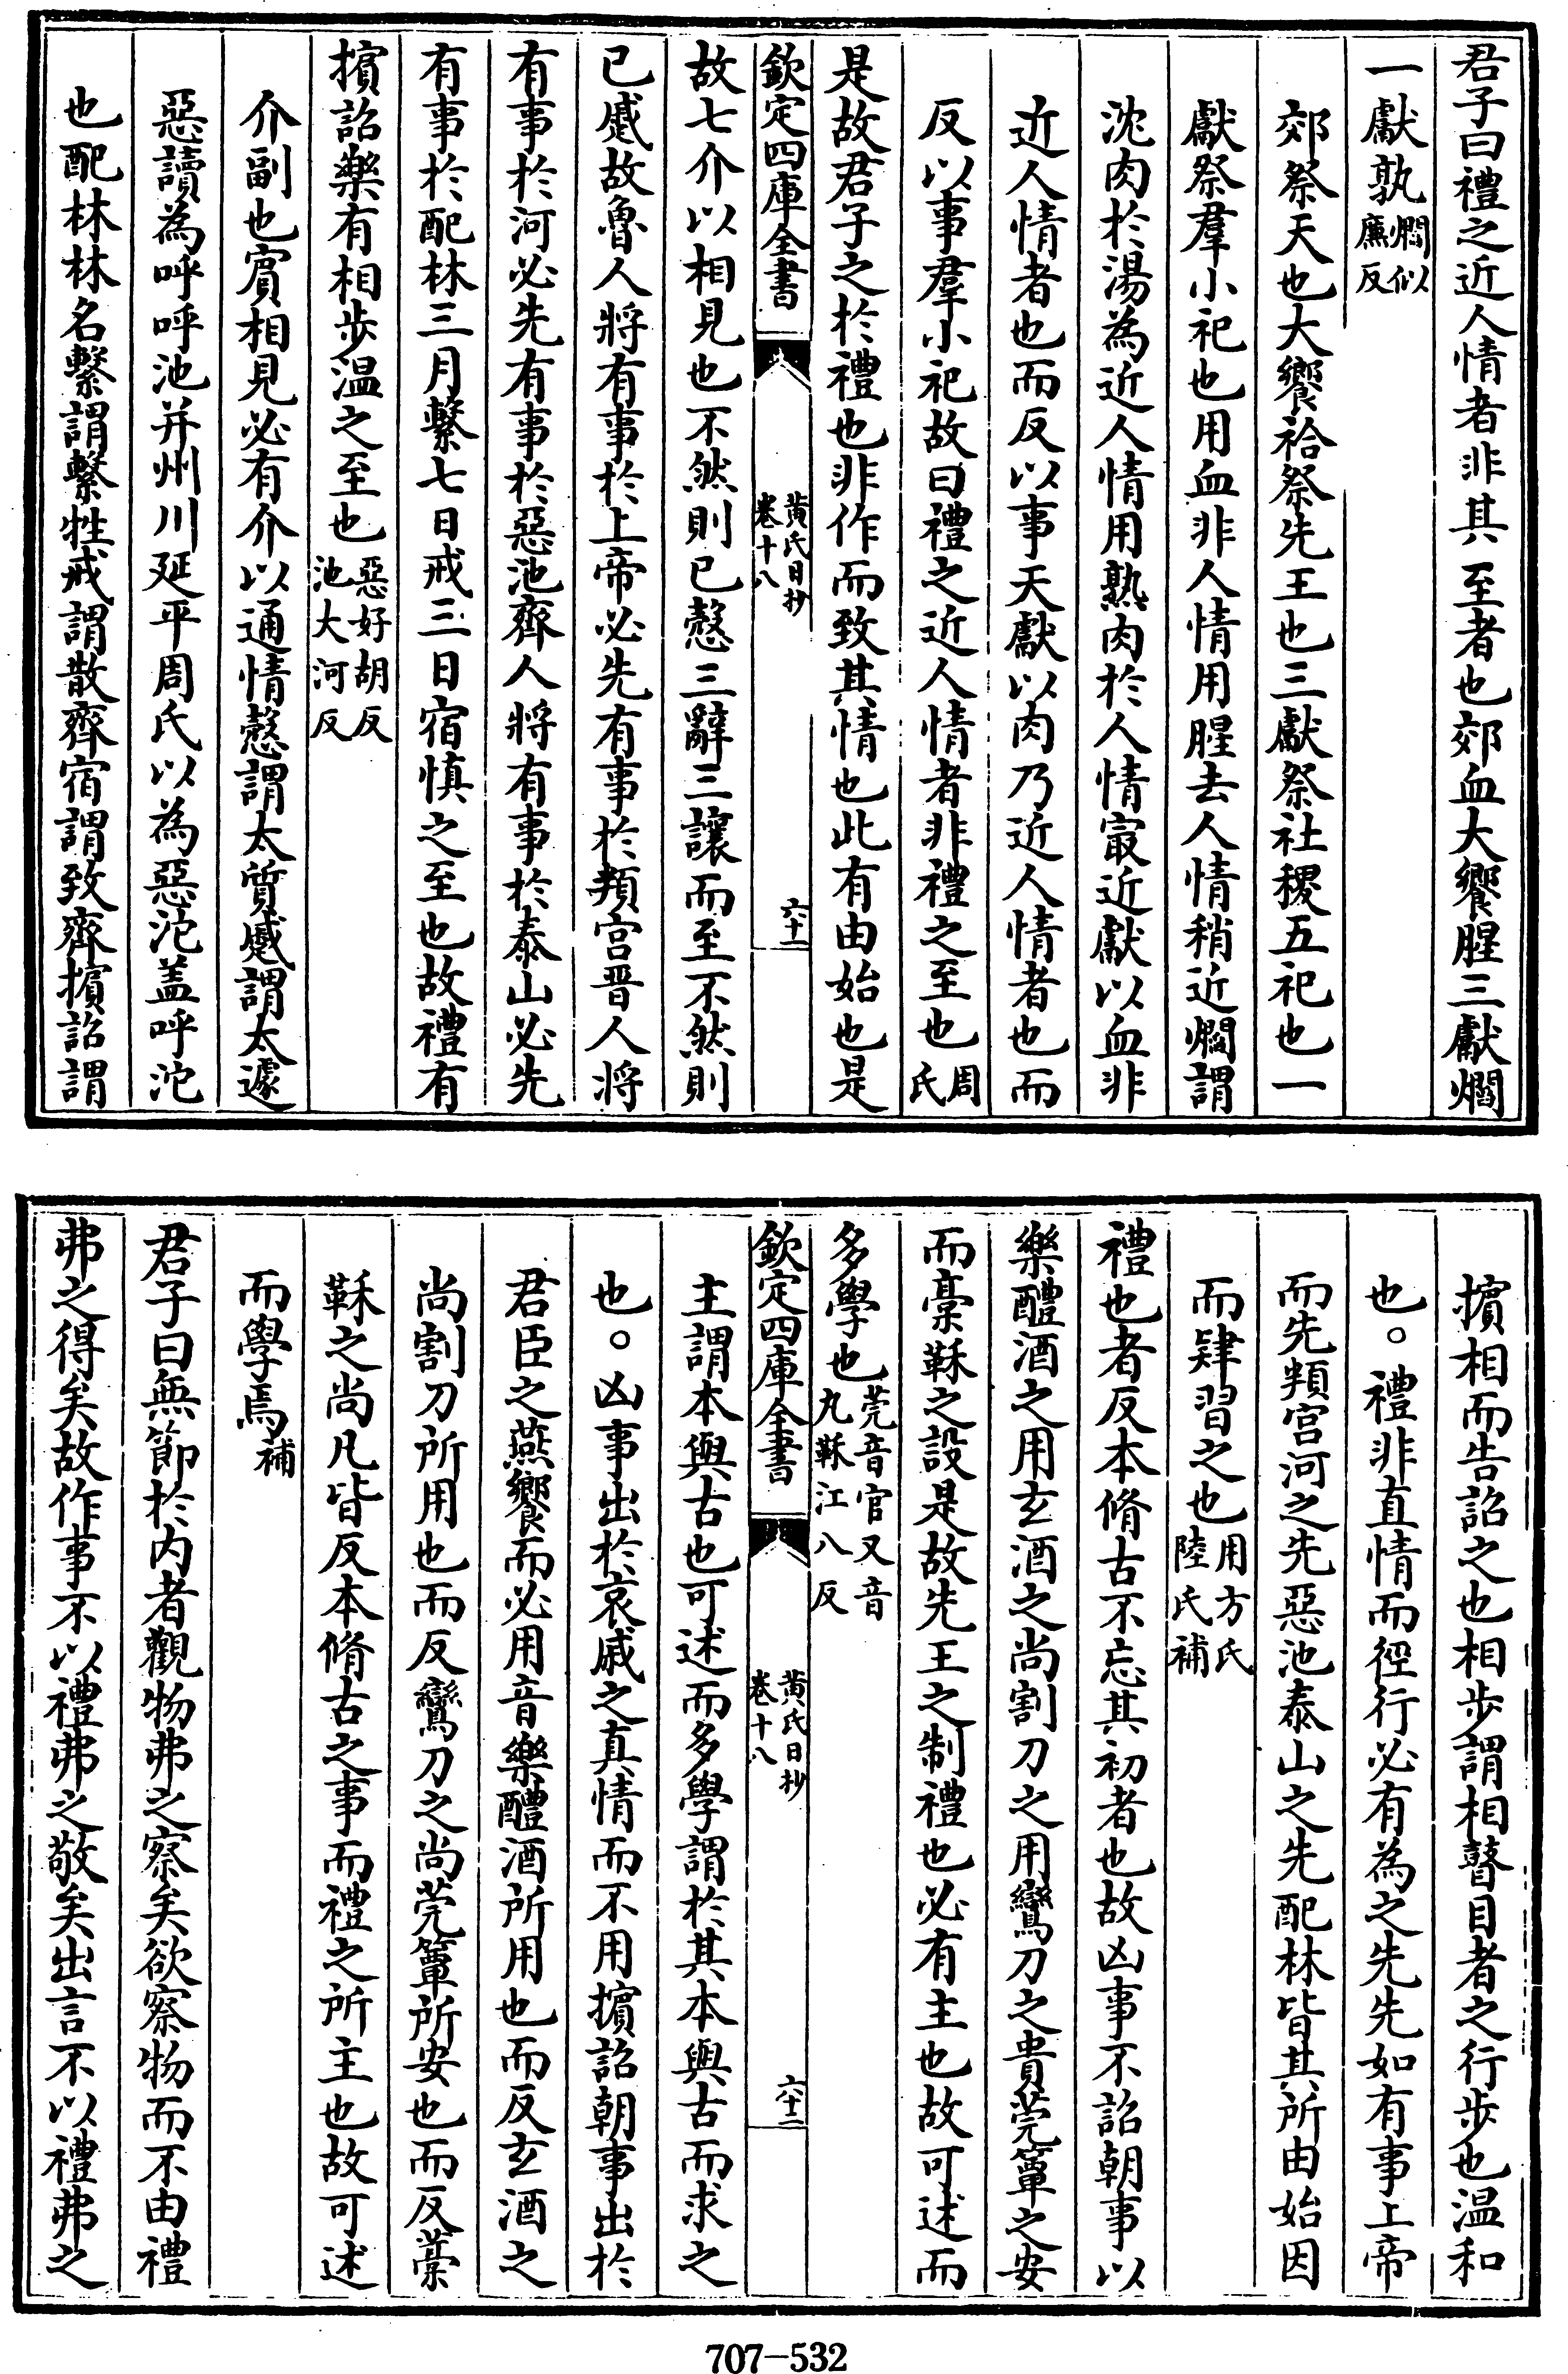 君子曰禮之近人情者非其至者也郊血大饗腥三獻爓
一獻孰爓似廉反
郊祭天也大饗祫祭先王也三獻祭社稷五祀也一
獻祭羣小祀也用血非人情用腥去人情稍近爓謂
沈肉於湯為近人情用熟肉於人情最近獻以血非
近人情者也而反以事天獻以肉乃近人情者也而
反以事羣小祀故曰禮之近人情者非禮之至也周氏
是故君子之於禮也非作而致其情也此有由始也是
欽定四庫全書 黃氏日抄 卷十八 六十一
故七介以相見也不然則已慤三辭三讓而至不然則
已蹙故魯人將有事於上帝必先有事於頖宫晋人將
有事於河必先有事於惡池齊人將有事於泰山必先
有事於配林三月繫七日戒三日宿慎之至也故禮有
擯詔樂有相步温之至也惡好胡反池大河反
介副也賔相見必有介以通情慤謂太質蹙謂太遽
惡讀為呼呼池并州川延平周氏以為惡沱盖呼沱
也配林林名繫謂繫牲戒謂散齊宿謂致齊擯詔謂
擯相而告詔之也相步謂相瞽目者之行步也温和
也○禮非直情而徑行必有為之先先如有事上帝
而先頖宫河之先惡池泰山之先配林皆其所由始因
而肄習之也用方氏陸氏補
禮也者反本脩古不忘其初者也故凶事不詔朝事以
樂醴酒之用玄酒之尚割刀之用鸞刀之貴莞簟之安
而稾鞂之設是故先王之制禮也必有主也故可述而
多學也莞音官又音丸鞂江八反
欽定四庫全書 黃氏日抄 卷十八 六十二
主謂本與古也可述而多學謂於其本與古而求之
也○凶事出於哀戚之真情而不用擯詔朝事出於
君臣之燕饗而必用音樂醴酒所用也而反玄酒之
尚割刀所用也而反鸞刀之尚莞簟所安也而反稾
鞂之尚凡皆反本脩古之事而禮之所主也故可述
而學焉補
君子曰無節於内者觀物弗之察矣欲察物而不由禮
弗之得矣故作事不以禮弗之敬矣出言不以禮弗之
707-532